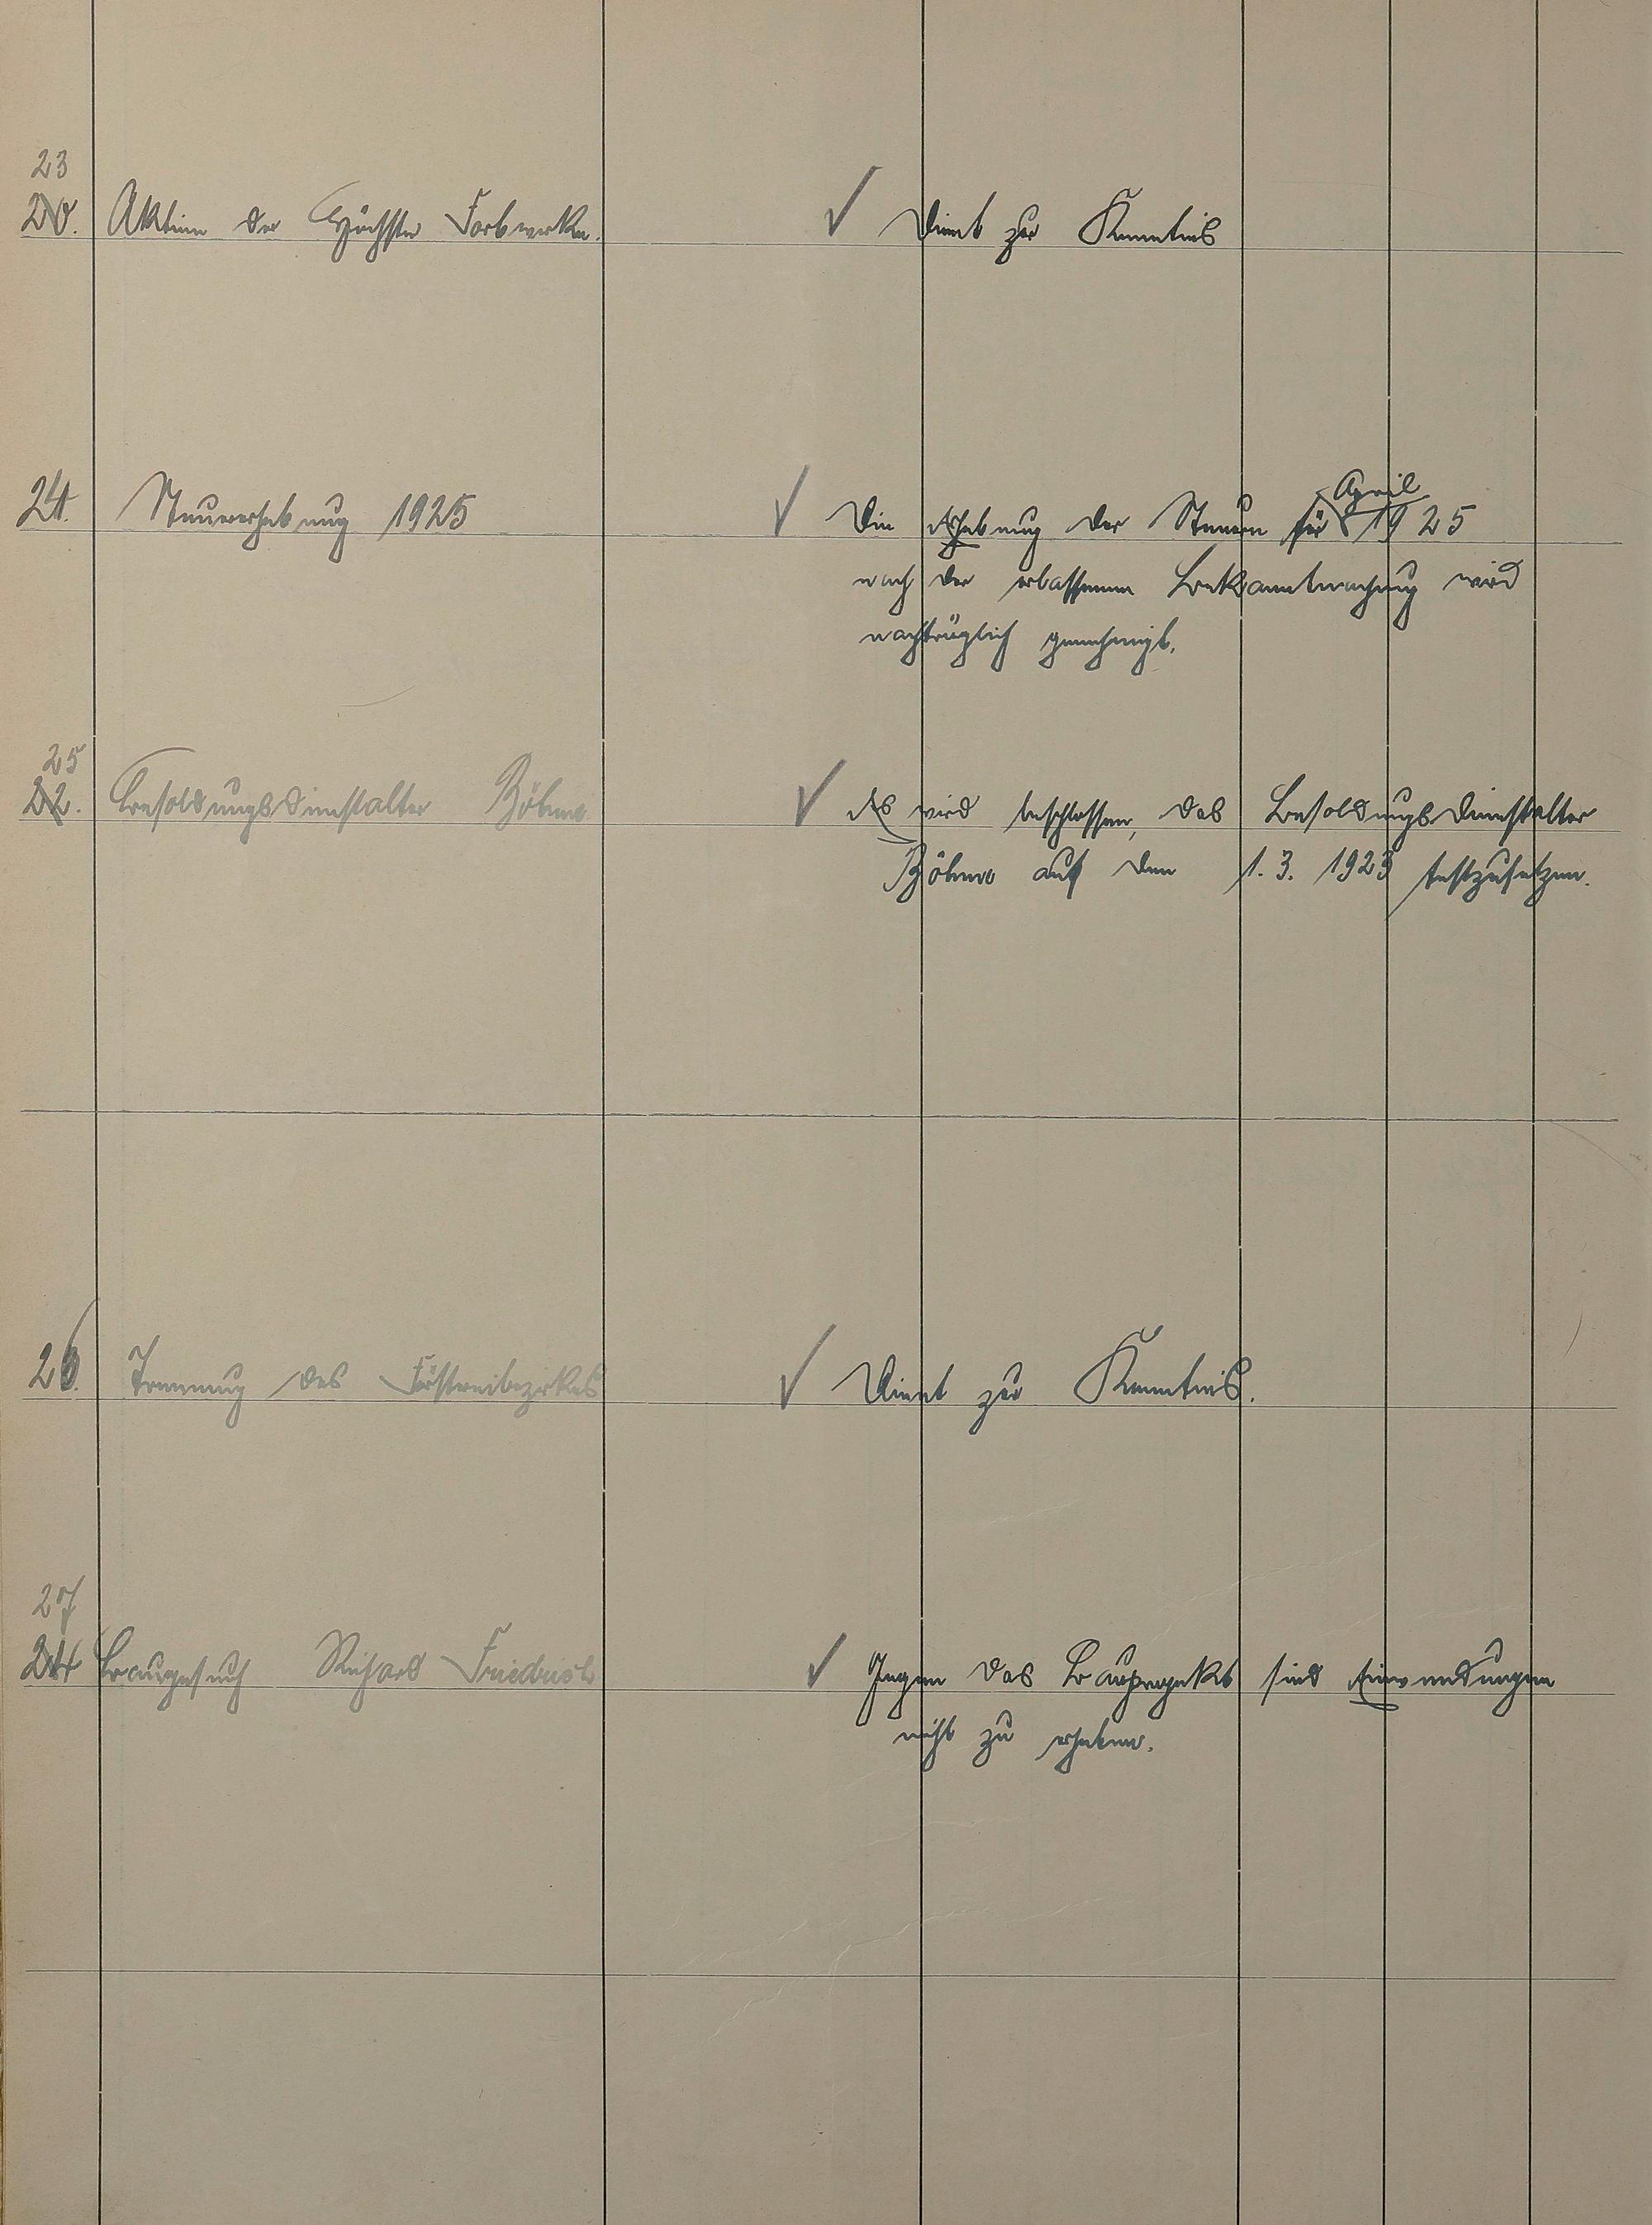 23
20. Aktien der Höchster Farbwerke. ✓ Dient zur Kenntnis
April
24. Steuererhebung 1925 ✓ Die Erhebung der Steuern für 1925
nach der erlassenen Bekanntmachung wird
nachträglich genehmigt.
25
22. Besoldungsdienstalter Böhme ✓ Es wird beschlossen, das Besoldungsdienstalter
Böhme auf den 1. 3. 1923 festzusetzen.
26. Trennung des Försterbezirkes ✓ Dient zur Kenntnis.
27
24 Baugesuch Richard Friedrich ✓ Gegen das Bauprojekt sind Einwendungen
nicht zu erheben.